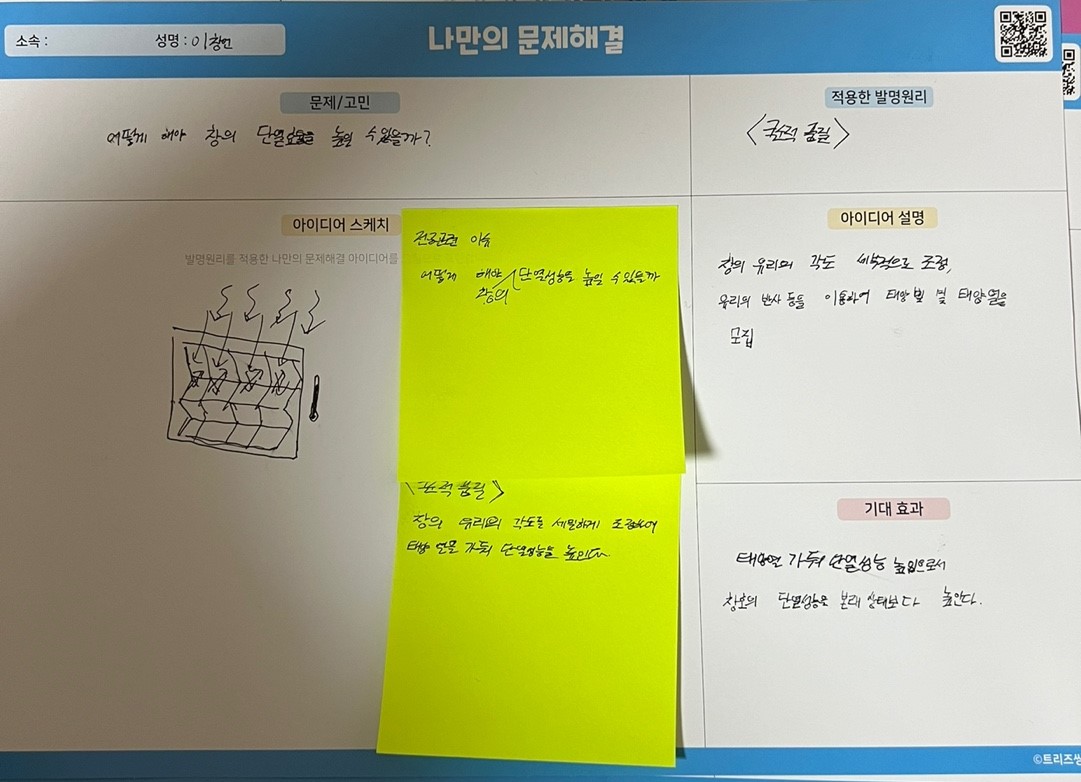 소속 :
성명 : 이창현
나만의 문제해결
문제/고민
어떻게 해야 창의 단열효율을 높일 수 있을까?
적용한 발명원리
<국소적 품질>
아이디어 스케치
발명원리를 적용한 나만의 문제해결 아이디어를
전공관련 이슈
어떻게 해야 창의 단열성능을 높일 수 있을까
<국소적 품질>
창의 유리의 각도를 세밀하게 조정하여
태양 열을 가둬 단열성능을 높인다.
아이디어 설명
창의 유리의 각도 세부적으로 조정,
유리의 반사 등을 이용하여 태양빛 및 태양열을
모집
기대 효과
태양열 가둬 단열성능 높임으로서
창호의 단열성능을 본래 상태보다 높인다.
©트리즈씽